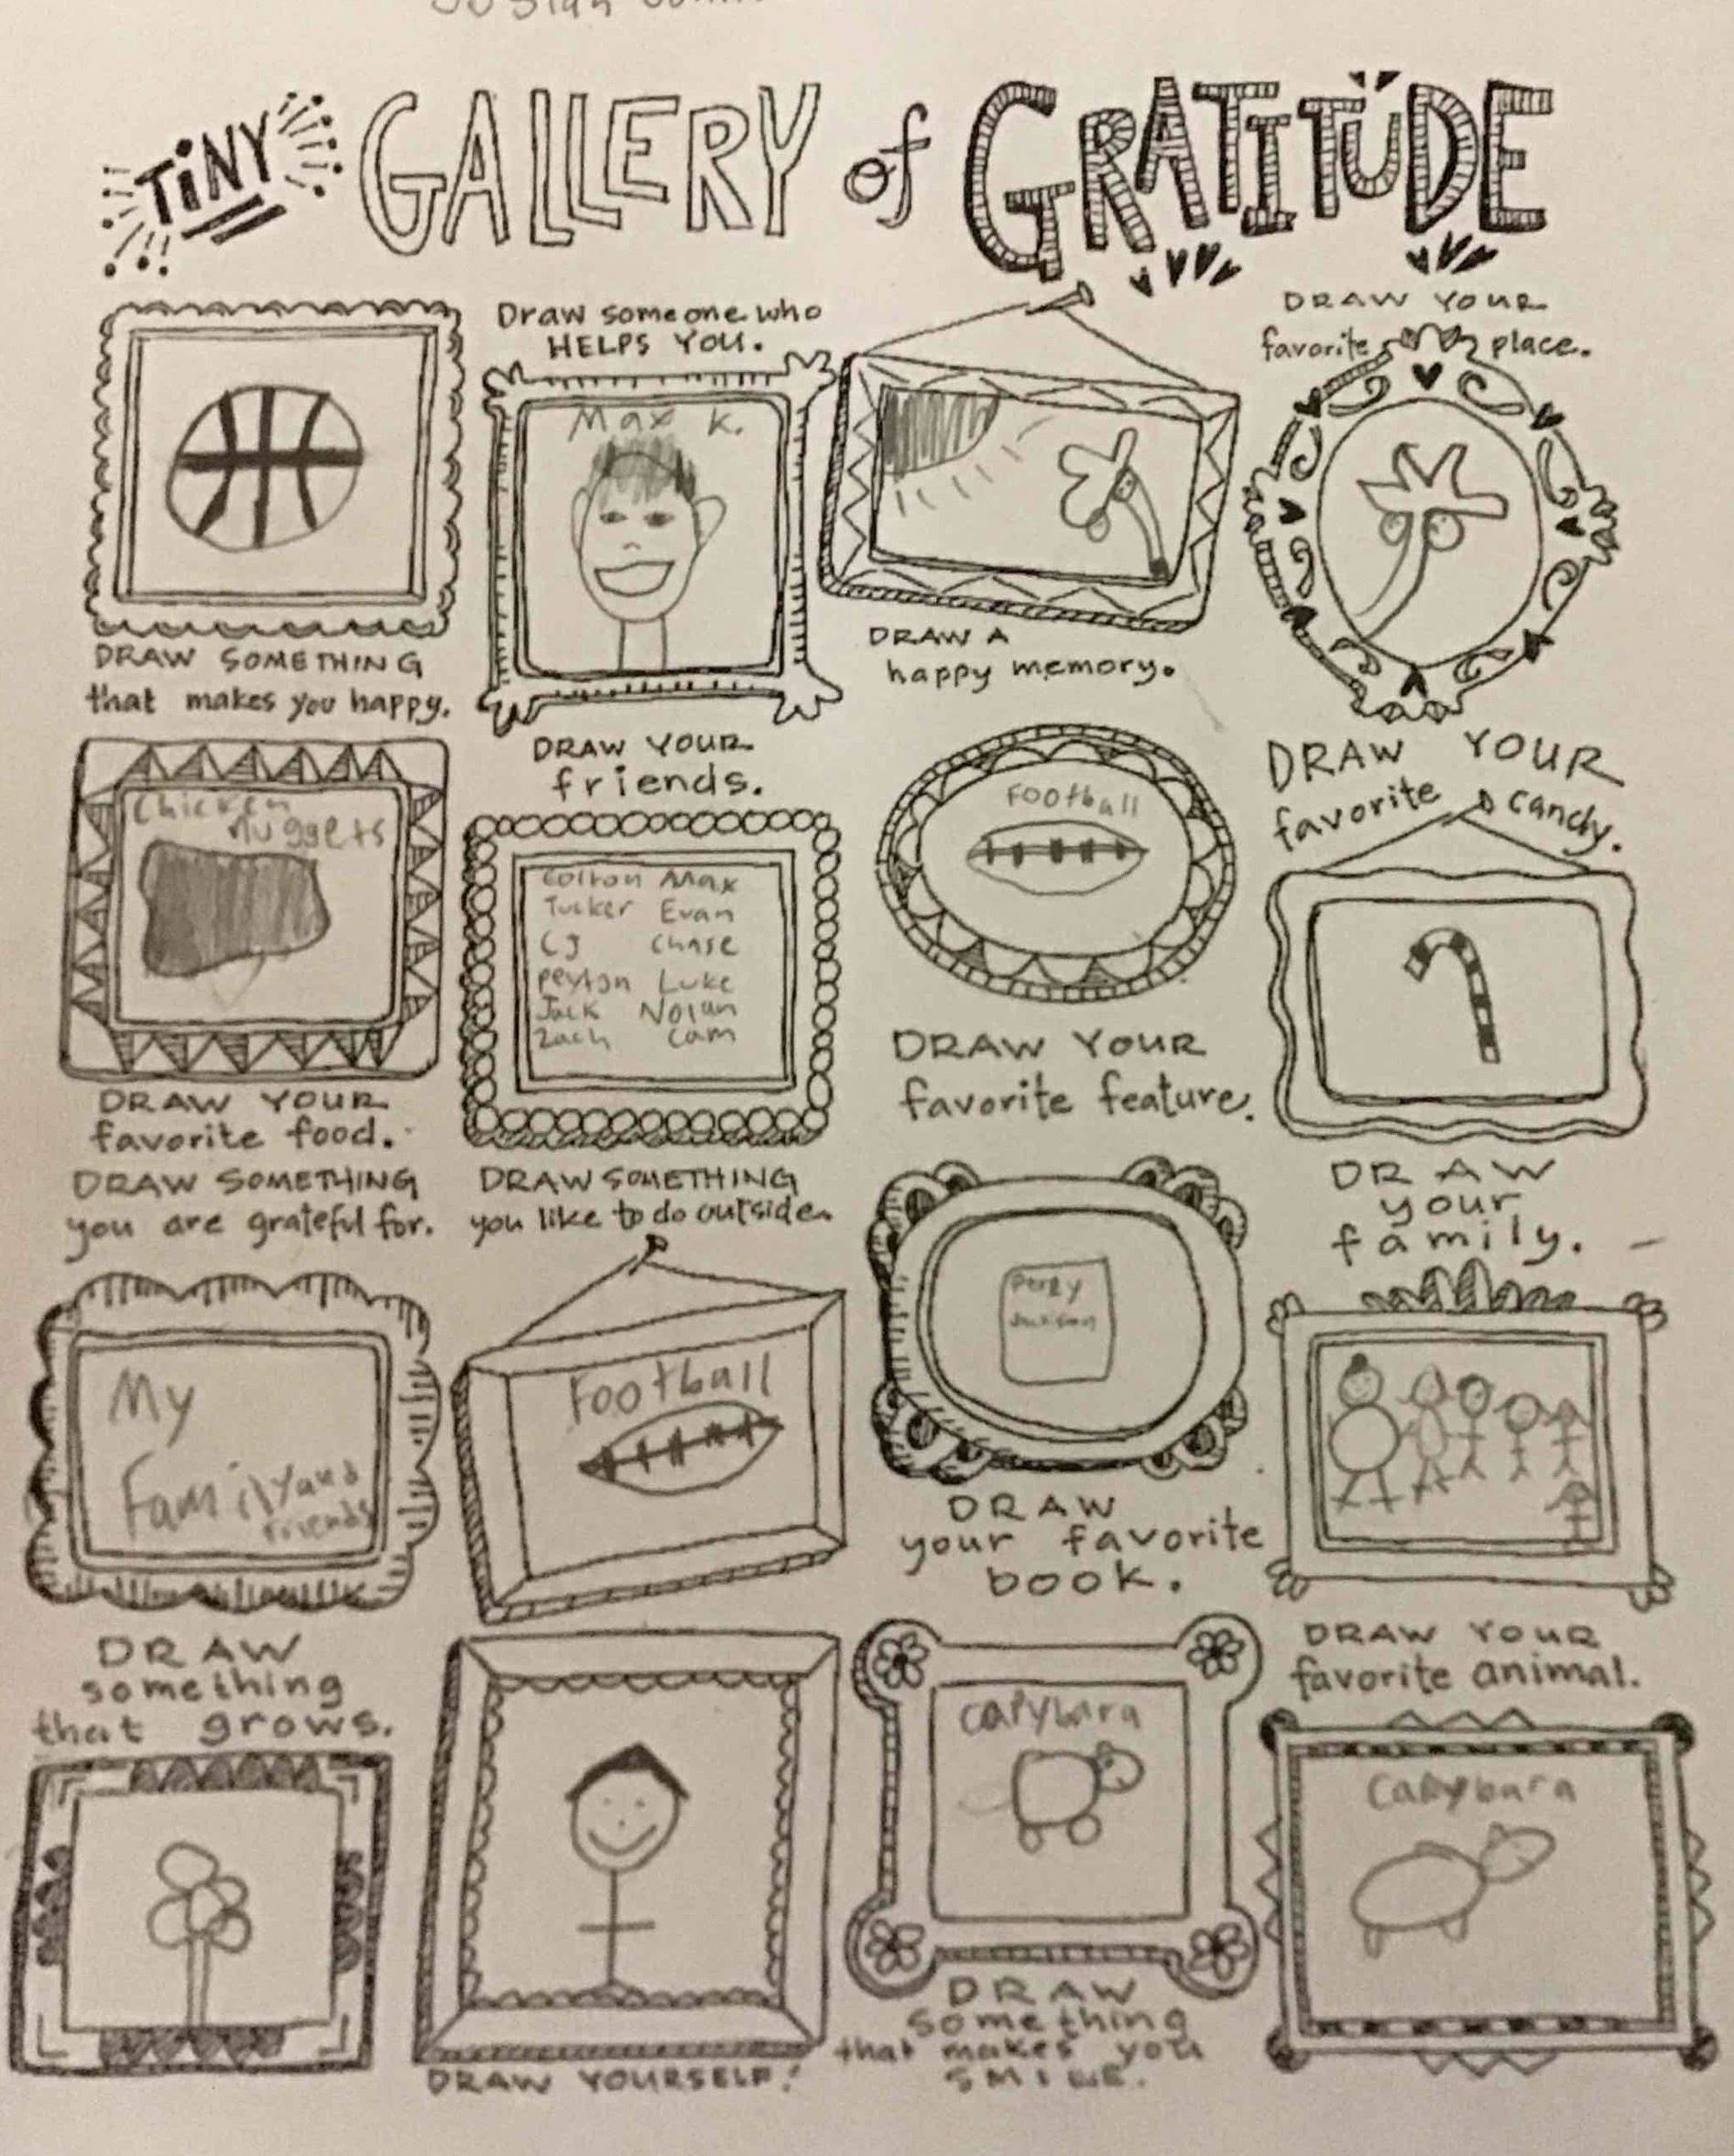 TiNY GALLERY of GRATITUDE
DRAW SOMETHING
that makes you happy.
Draw someone who
HELPS YOU.
Max K.
DRAW A
happy memory.
DRAW YOUR
favorite place.
Chicken
Nuggets
DRAW YOUR
favorite food.
DRAW YOUR
friends.
Colton Max
Tucker Evan
CJ Chase
Peyton Luke
Jack Nolan
Zach Cam
Football
DRAW YOUR
favorite feature.
DRAW YOUR
favorite candy.
DRAW SOMETHING
you are grateful for.
My
Family and
friends
DRAW SOMETHING
you like to do outside.
Football
Percy
Jackson
DRAW
your favorite
book.
DRAW
your
family.
DRAW
something
that grows.
DRAW YOURSELF!
Capybara
DRAW
something
that makes you
SMILE.
DRAW YOUR
favorite animal.
Capybara